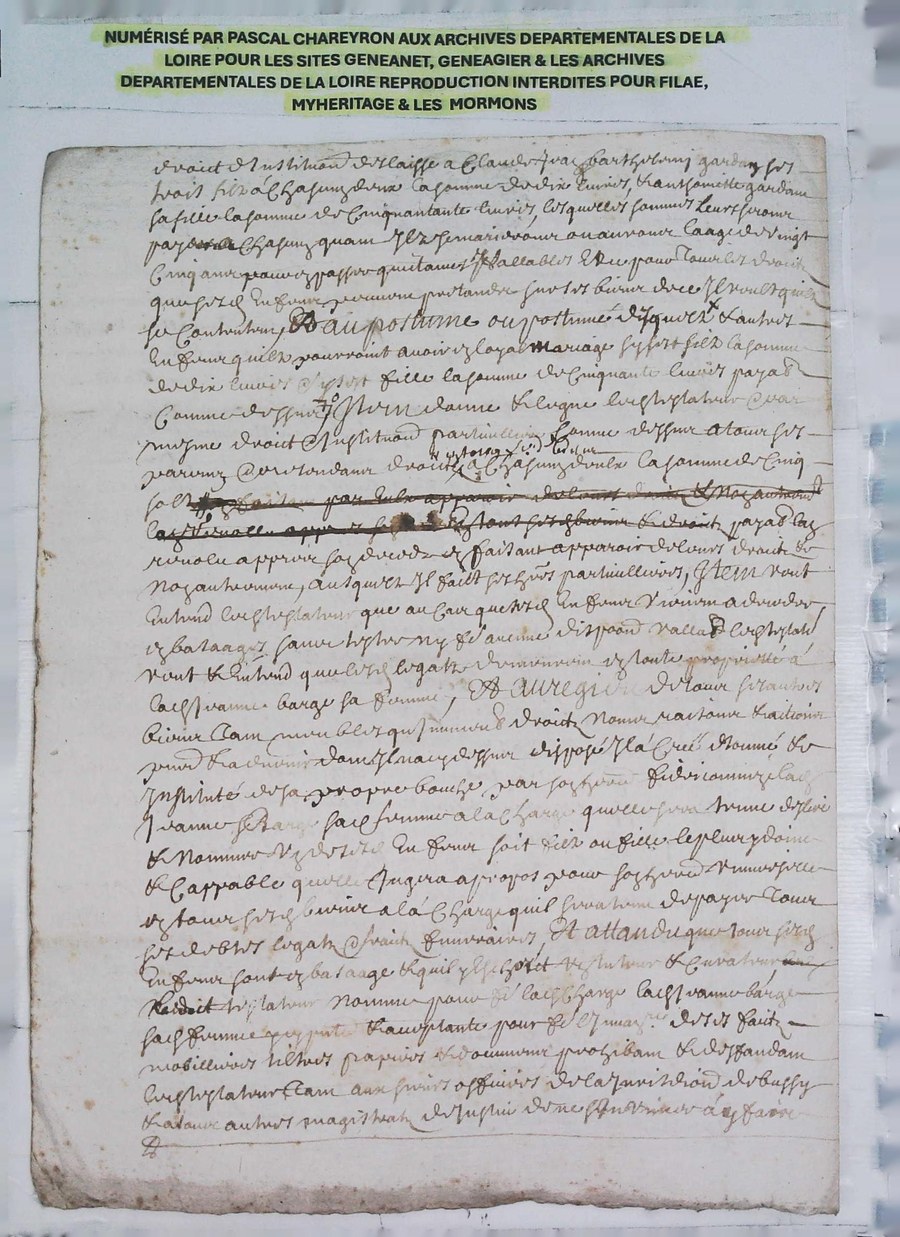 NUMÉRISÉ PAR PASCAL CHAREYRON AUX ARCHIVES DEPARTEMENTALES DE LA
LOIRE POUR LES SITES GENEANET, GENEAGIER & LES ARCHIVES
DEPARTEMENTALES DE LA LOIRE REPRODUCTION INTERDITES POUR FILAE,
MYHERITAGE & LES MORMONS
droict d'Institution delaisse a Claude Jean barthelemy gardon ses
trois filz a Chascung deux la somme de dix livres, & anthoinette gardon
sa fille la somme de Cinquantante livres, lesquelles sommes leur seront
a Chascung quant Ilz se marieront ou auront l'aage de vingt
Cinq ans pouvoir passer quitance vallables & ce pour tous les droictz
que sesd Enfans pourront pretandre sur ses biens de ce Il veult quilz
se Contentent, Et au postume ou postumes desquelz & autres
Enfans quilz pourroint avoir en loyal mariage sy sont filz la somme
de dix livres sy sont fille la somme de Cinquante livres payab
Comme dessus Item donne & legue led testateur par
mesme droict d'Institution particulliere comme dessus a tous ses
parens pretendans droict a Chascung deulx la somme de Cinq
solz
revolu appres son deces en faisant apparoir de leurs droictz &
non autrement, ausquelz Il faict ses hers particulliers, Item veut
Entend led testateur que au Cas que sesd Enfans vienne a deceder
en bas aage sans tester ny de aucune disposon vallab led testat
veut & Entend que lesd legatz demeurein en toute proprietté a
lad Jeanne barge sa femme, Et au regard de tous ses autres
biens tant meubles qu'Immeub droictz noms raisons & actions
pnts & advenir dont Il n'a cy dessus disposé Il a Creé Nomme &
Institué de sa propre bouche par son here fideicommis lad
Jeanne Barge sad femme a la Charge quelle sera tenue d'eslire
& Nommer ung de sesd Enfans soit filz ou fille le plus ydoine
& Cappable quelle Jugera a propos pour son here universelle
en tous sesd biens a la Charge quil sera tenu de payer tous
ses debtes legatz & fraictz funeraires, Et attandu que tous sesd
Enfans sont en bas aage & quil y eschoict tuteur & Curateur
Ledoit testateur nomme pour lad Charge lad Jeanne barge
sad femme pnte & acceptante pour de ses faictz
mobilliers tiltres papiers & documens prohibant & deffandant
led testateur tant aux sieurs officiers de la Jurisdiction de bussy
& a tous autres magistratz de Justice de ne s'Immisser a y faire